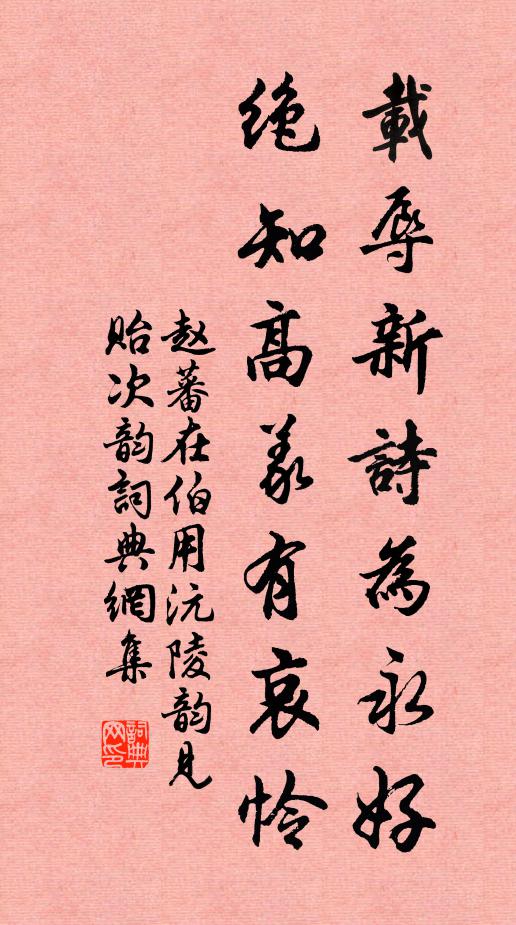 載辱新詩為永好
绝知高義有哀怜
赵蕃在伯用沅陵韵見
貽次韵詞典網集
詞典網印